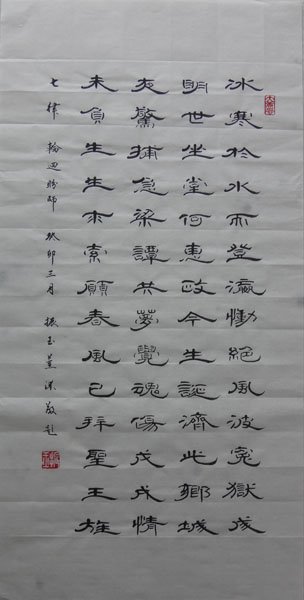 冰寒於水而登瀛慟絕風波冤獄成
明世坐堂何惠政今生誕濟此鄉城
夜驚捕急梁譚共夢覺魂傷戊戌情
未負生生求索願春風已拜聖王旌
七律 迎盼師 癸卯三月 振玉